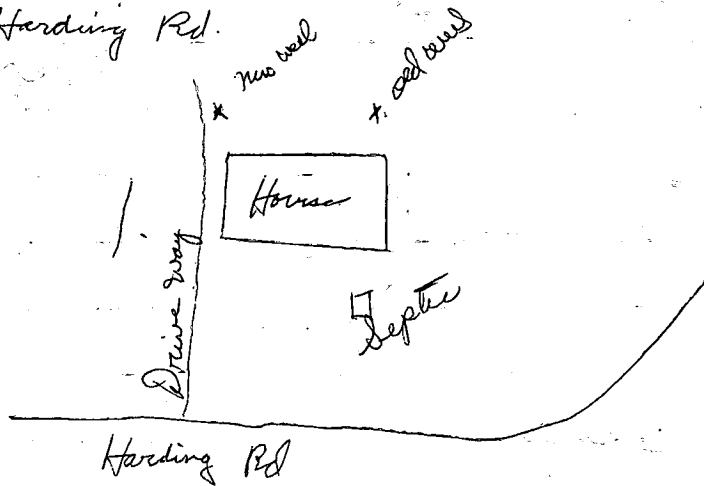 Harding Rd.
new well
old well
House
Drive way
Septic
Harding Rd